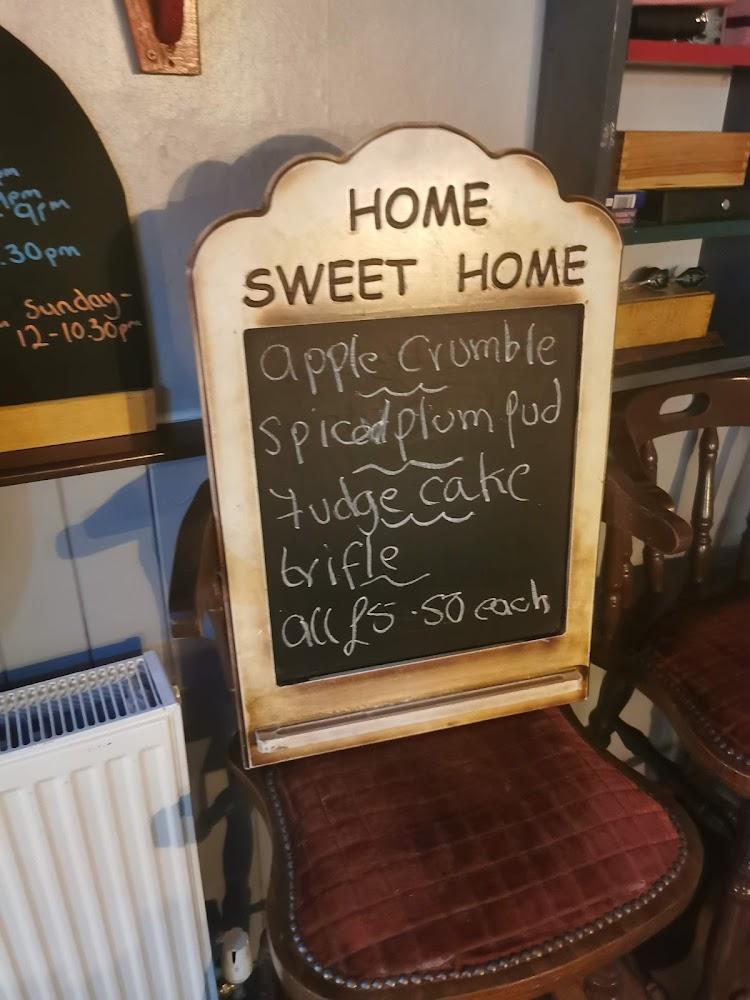 pm
9pm
.30pm
Sunday-
12-10.30pm
HOME
SWEET HOME
apple crumble
spiced plum pud
fudge cake
trifle
all £5.50 each